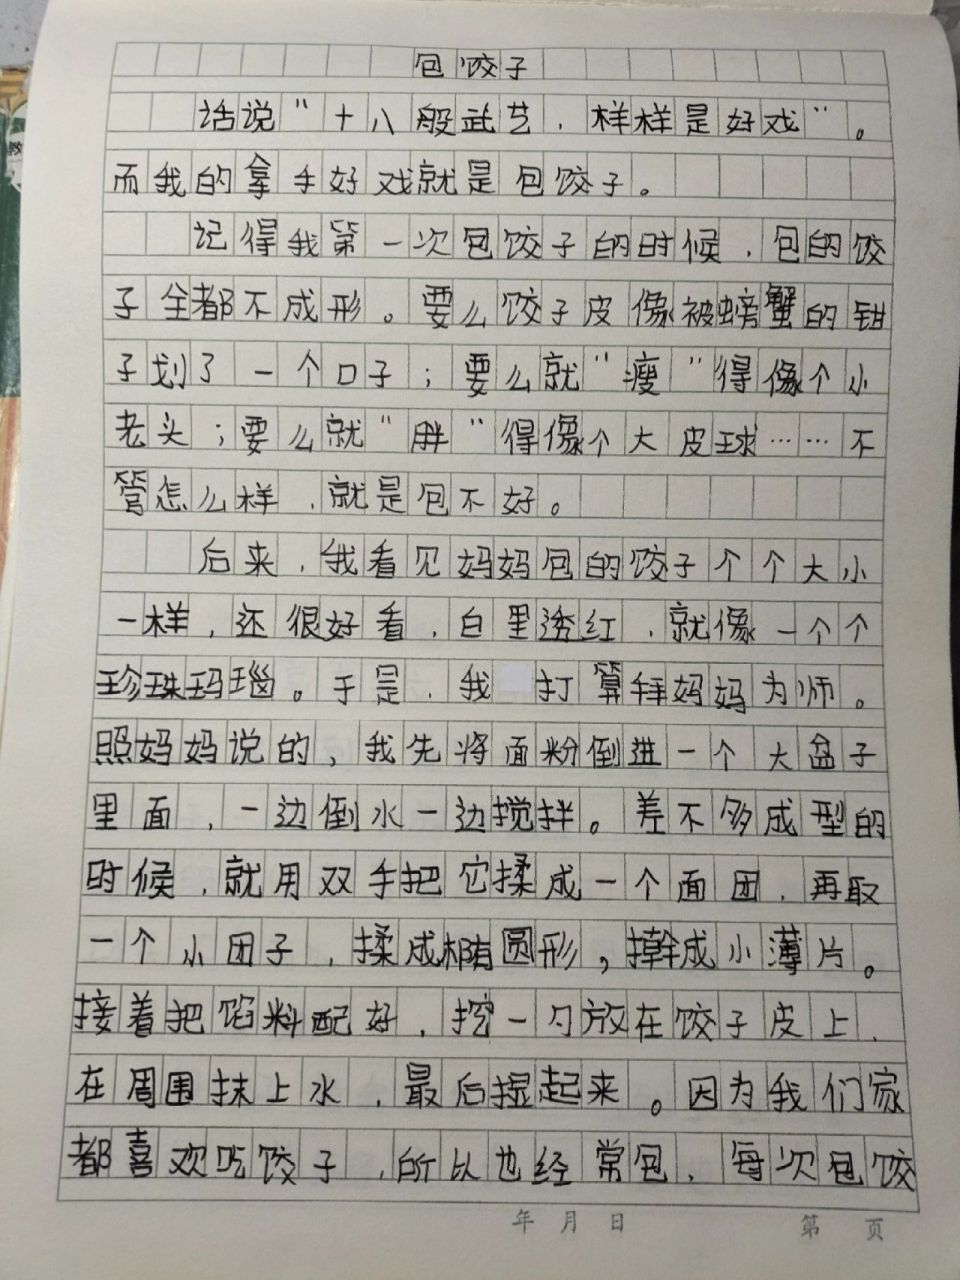 包饺子
话说"十八般武艺，样样是好戏"。
而我的拿手好戏就是包饺子。
记得我第一次包饺子的时候，包的饺
子全都不成形。要么饺子皮像被螃蟹的钳
子划了一个口子；要么就"瘦"得像个小
老头；要么就"胖"得像个大皮球……不
管怎么样，就是包不好。
后来，我看见妈妈包的饺子个个大小
一样，还很好看，白里透红，就像一个个
珍珠玛瑙。于是，我打算拜妈妈为师。
照妈妈说的，我先将面粉倒进一个大盆子
里面，一边倒水一边搅拌。差不多成型的
时候，就用双手把它揉成一个面团，再取
一个小团子，揉成椭圆形，擀成小薄片。
接着把馅料配好，挖一勺放在饺子皮上，
在周围抹上水，最后捏起来。因为我们家
都喜欢吃饺子，所以也经常包，每次包饺
年 月 日 第 页